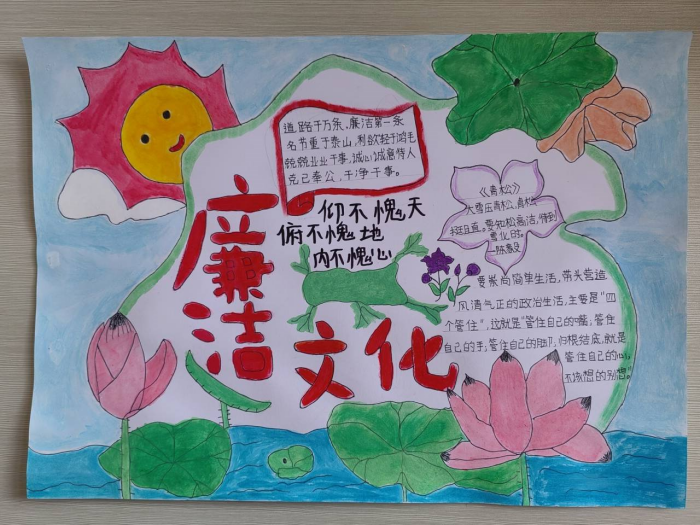 道路千万条，廉洁第一条
名节重于泰山，利欲轻于鸿毛
兢兢业业干事，诚心诚意待人
克己奉公，干净干事。
仰不愧天
俯不愧地
内不愧心
廉洁
文化
《青松》
大雪压青松，青松
挺且直。要知松高洁，待到
雪化时。
—陈毅
要崇尚简单生活，带头营造
风清气正的政治生活，主要是“四
个管住”，这就是“管住自己的嘴，管住
自己的手，管住自己的脚，归根结底，就是
管住自己的心，
不该想的别想”。